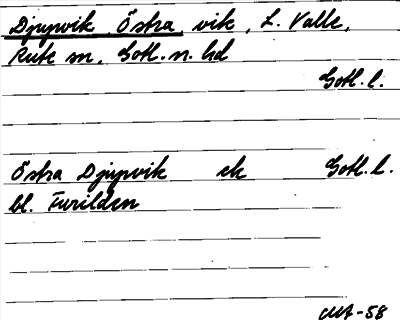 Djupvik, Östra, vik, L. Valle,
Rute sn, Gotl. n. hd
Gotl. l.
Östra Djupvik ek Gotl. l.
bl. Furilden
MA-58